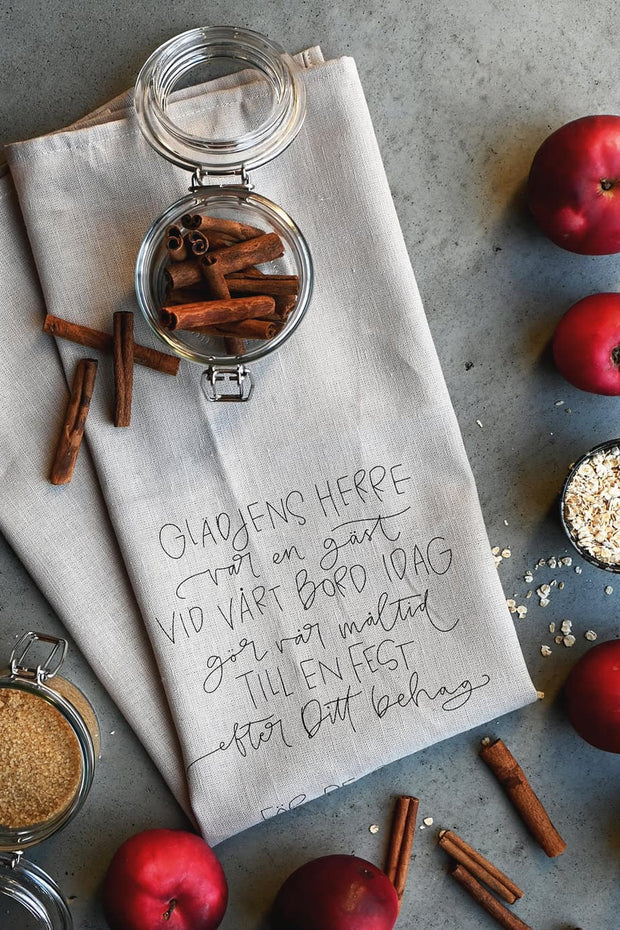 GLADJENS HERRE
var en gäst
VID VÅRT BORD IDAG
gör vår måltid
TILL EN FEST
efter Ditt behag
FÖR DE